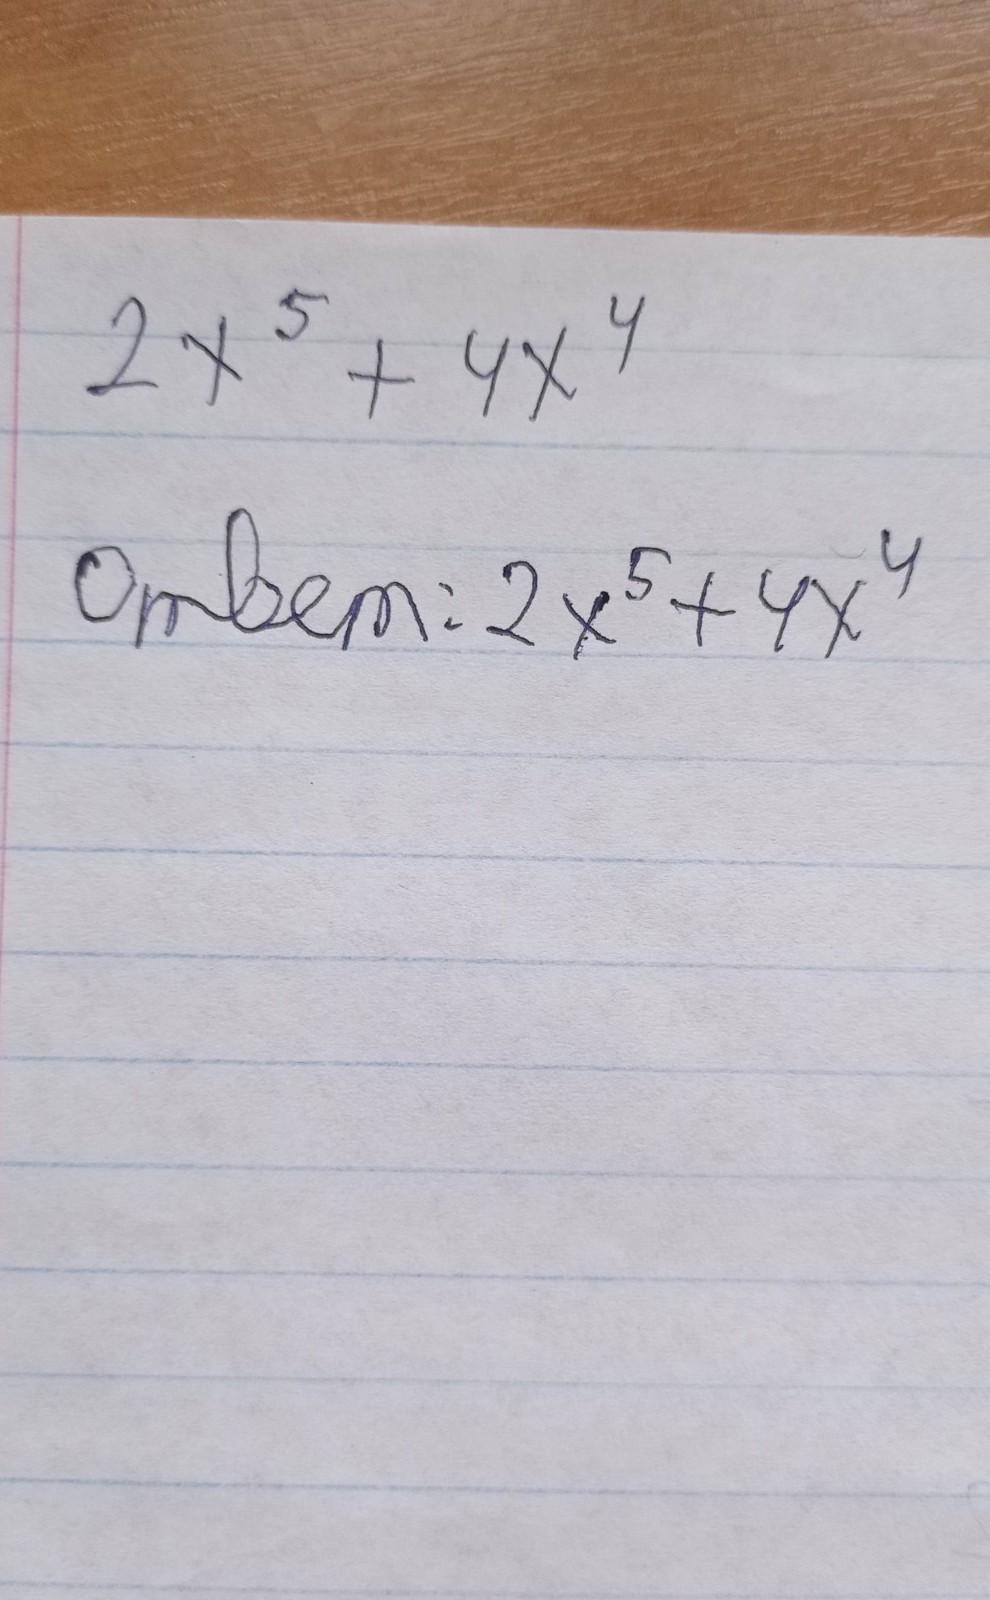 2x⁵ + 4x⁴
Ответ: 2x⁵ + 4x⁴